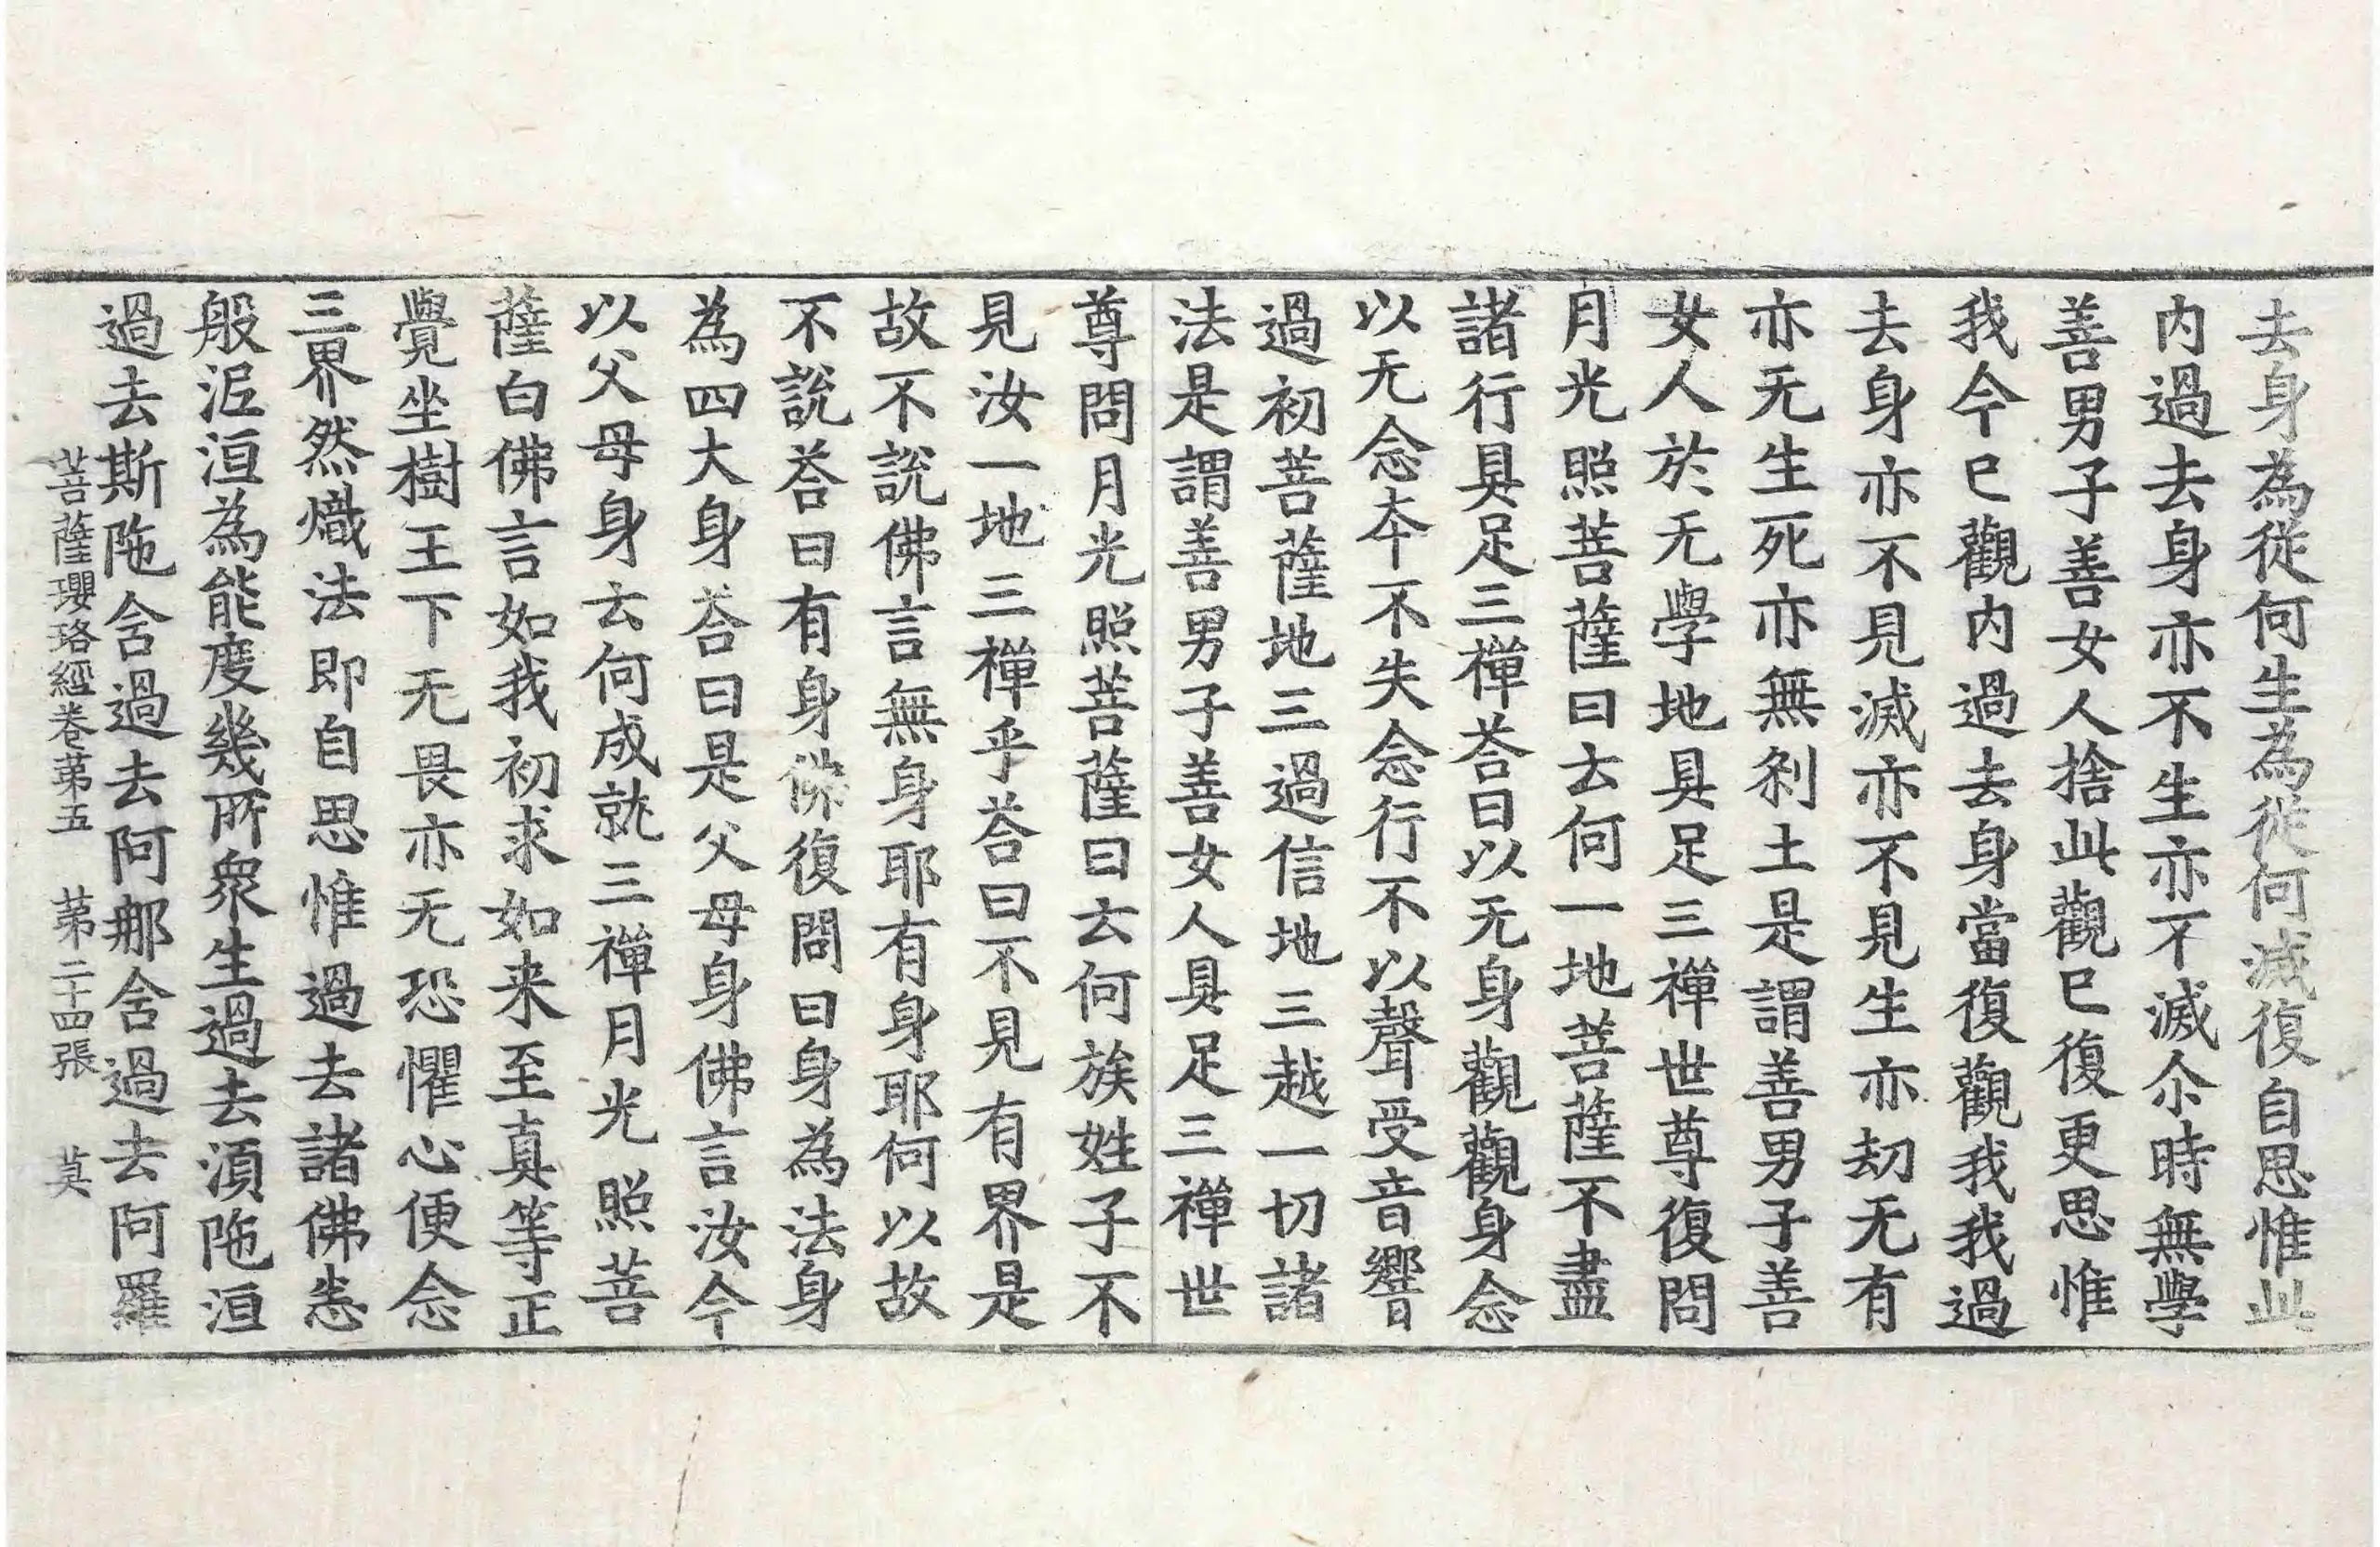 去身為從何生為從何滅復自思惟此
内過去身亦不生亦不滅尒時無學
善男子善女人捨此觀已復更思惟
我今已觀内過去身當復觀我我過
去身亦不見滅亦不見生亦劫无有
亦无生死亦無刹土是謂善男子善
女人於无學地具足三禪世尊復問
月光照菩薩曰云何一地菩薩不盡
諸行具足三禪荅曰以无身觀觀身念
以无念夲不失念行不以聲受音響
過初菩薩地三過信地三越一切諸
法是謂善男子善女人具足三禪世
尊問月光照菩薩曰云何族姓子不
見汝一地三禪乎荅曰不見有界是
故不説佛言無身耶有身耶何以故
不説荅曰有身佛復問曰身為法身
為四大身荅曰是父母身佛言汝今
以父母身云何成就三禪月光照菩
薩白佛言如我初求如来至真等正
覺坐樹王下无畏亦无恐懼心便念
三界然熾法即自思惟過去諸佛悉
般泥洹為能度幾所衆生過去湏陁洹
過去斯陁含過去阿那含過去阿羅
菩薩瓔珞經卷苐五 苐二十四張 莫